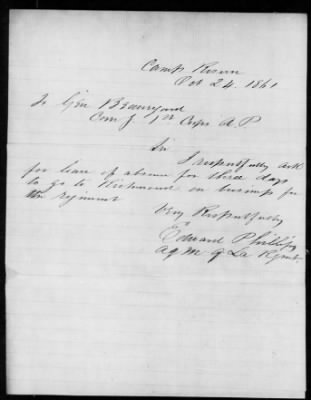 Oct 24. 1861
To Gen Beauregard
Com g 1st Corps A.P.
Sir
I respectfully ask
for leave of absence for three days
to go to Richmond on business for
the regiment
Very Respectfully
Edward Phillips
A Q M 9 La Regmt.